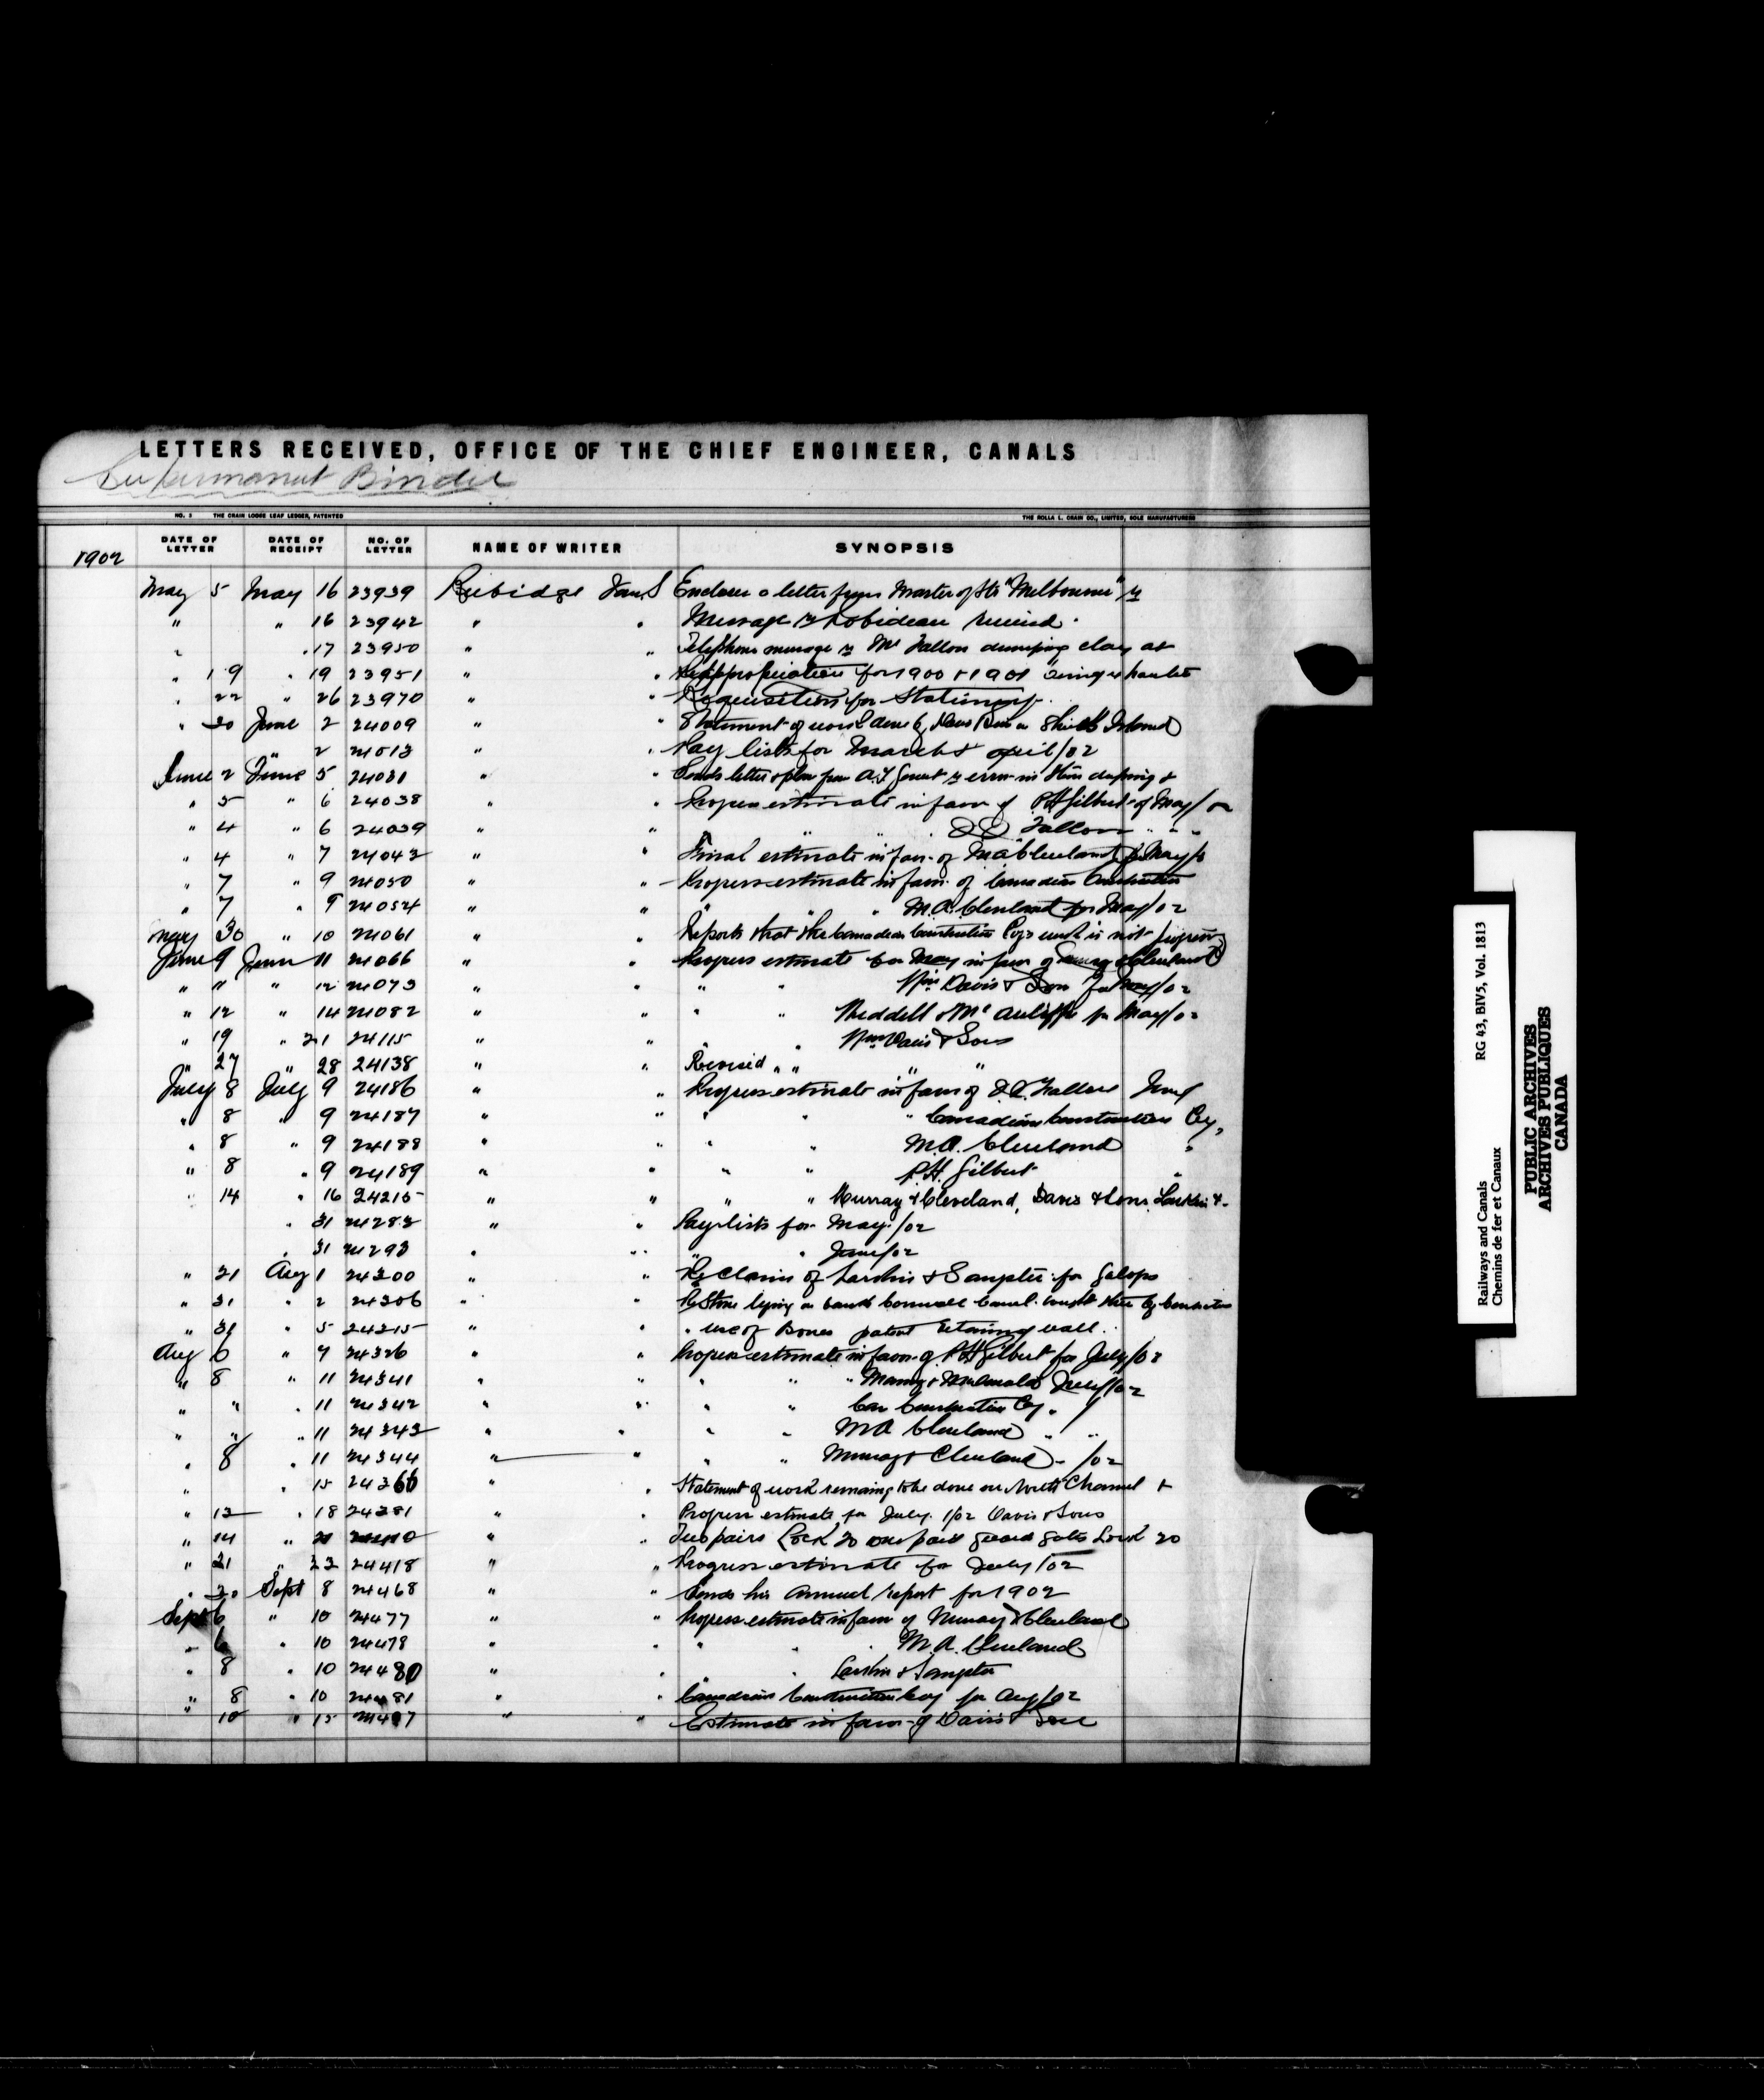 LETTERS RECEIVED, OFFICE OF THE CHIEF ENGINEER, CANALS
See permanent Binder
NO. 3 THE CRAIN LOOSE LEAF LEDGER, PATENTED THE ROLLA L. CRAIN CO., LIMITED, SOLE MANUFACTURERS
1902 DATE OF LETTER DATE OF RECEIPT NO. OF LETTER NAME OF WRITER SYNOPSIS
May 5 May 16 23939 Rubidge Tom. S Encloses a letter from Master of Str "Melbourne" re
" " 16 23942 " " Message re Robideau
" 17 23950 " " Telephone message re Mc Fallon dumping clay at
" 19 " 19 23951 " " Reappropriation for 1900 & 1901
" 22 " 26 23970 " " Requisition for Stationery.
" 30 June 2 24009 " " Statement of work done by Davis & Sons on Sheik Island
" 2 24013 " " Pay lists for March & April/02
June 2 June 5 24031 " " Sends letter & plan from re error in
" 5 " 6 24038 " " Progress estimate in favor of P.H. Gilbert of May/02
" 4 " 6 24039 " " " " Fallon " "
" 4 " 7 24042 " " Final estimate in favr. of M.A. Cleveland for May/0
" 7 " 9 24050 " " Progress estimate in favr. of Canadian Construction
" 7 " 9 24054 " " " " " M.A. Cleveland for May/02
May 30 " 10 24061 " " Reports that the Canadian Construction Coys work is not
June 9 June 11 24066 " " Progress estimate for May in favor of Murray & Cleveland
" " " 12 24073 " " " " Wm Davis & Son for May/02
" 12 " 14 24082 " " " " Weddell & Mc Auliffe for May/02
" 19 " 21 24115 " " " " Wm Davis & Sons
" 27 " 28 24138 " " Revised " " " "
July 8 July 9 24186 " " Progress estimate in favor of Fallon June
" 8 " 9 24187 " " " " " Canadian Construction Coy,
" 8 " 9 24188 " " " " M.A. Cleveland "
" 8 " 9 24189 " " " " P.H. Gilbert "
" 14 " 16 24215 " " " " Murray & Cleveland, Davis & Sons, Larkin &
" 31 24282 " " Paylists for May./02
" 31 24293 " " " " June/02
" 31 Aug 1 24300 " " Re Claim of Larkin & Sangster for Galops
" 31 " 2 24306 " " Re Stone lying on bank Cornwall Canal.
" 31 " 5 24315 " " " use of Bones patent retaining wall.
Aug 6 " 7 24326 " " Progress estimate in favor of P.H. Gilbert for July/02
" 8 " 11 24341 " " " " " July/02
" " " 11 24342 " " " " Can Construction Coy. "
" " " 11 24343 " " " " M A Cleveland " "
" 8 " 11 24344 " " " " Murray & Cleveland - /02
" " 15 24366 " " Statement of work remaining to be done on North Channel &
" 13 " 18 24381 " " Progress estimate for July. /02 Davis & Sons
" 14 " " " Two pairs Lock 20 one pair guard gates Lock 20
" 21 " 23 24418 " " Progress estimate for July/02
" 30 Sept 8 24468 " " Sends his Annual report for 1902
Sept 6 " 10 24477 " " Progress estimate in favor of Murray & Cleveland
" 6 " 10 24478 " " " " " M.A. Cleveland
" 8 " 10 24480 " " " " Larkin & Sangster
" 8 " 10 24481 " " Canadian Construction Coy for Aug/02
" 10 " 15 " " Estimate in favor of Davis & Son
Railways and Canals
Chemins de fer et Canaux
RG 43, BIV5, Vol. 1813
PUBLIC ARCHIVES
ARCHIVES PUBLIQUES
CANADA